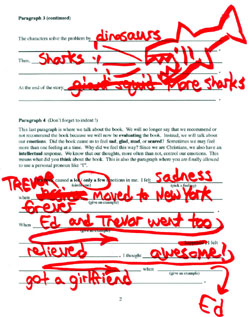 Paragraph 3 (continued)
The characters solve the problem by dinosaurs
Then, Sharks
At the end of the story, giant squid More sharks
Paragraph 4 (Don't forget to indent!)
This last paragraph is where we talk about the book. We will no longer say that we recommend or
not recommend the book because we will now be evaluating the book. Instead, we will talk about
our emotions. Did the book cause us to feel sad, glad, mad, or scared? Sometimes we may feel
more than one feeling at a time. Why did we feel this way? Since we are Christians, we also have an
intellectual response. We know that our thoughts, more often than not, control our emotions. This
means what did you think about the book. This is also the paragraph where you are finally allowed
to use a personal pronoun like "I".
caused a lot only a few emotions in me. I felt sadness
(pick a feeling)
When TREVOR moved to New York
(give an example)
forever
When Ed and Trevor went too
(give an example)
I felt
relieved I thought awesome!
when
(give an example)
got a girlfriend
Ed
2